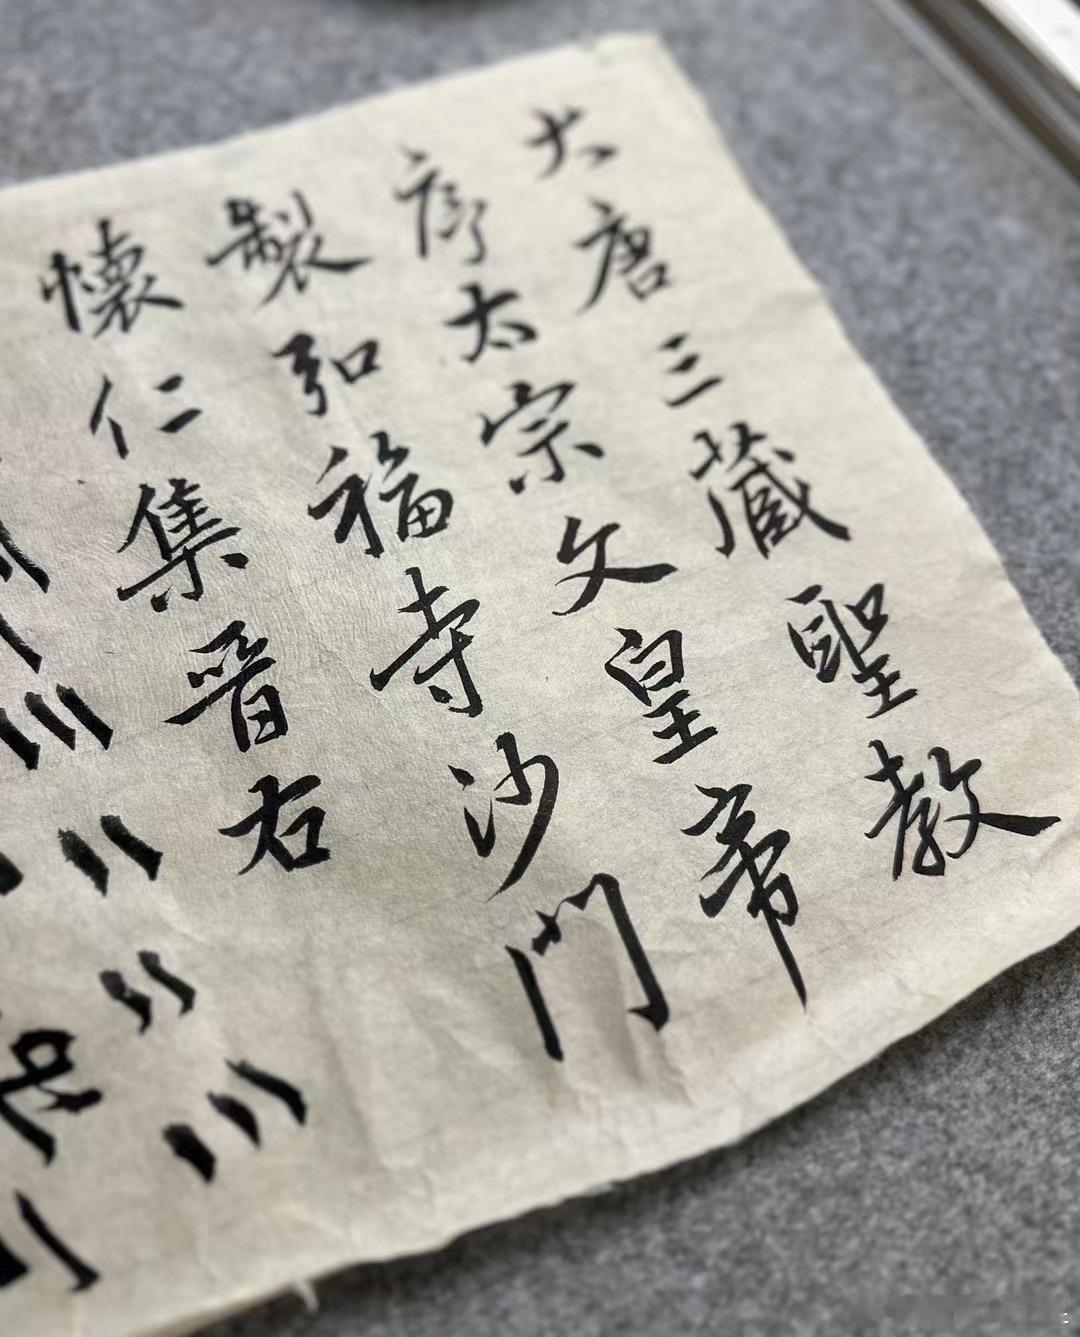 大唐三藏聖教
序太宗文皇帝
製弘福寺沙門
懷仁集晋右